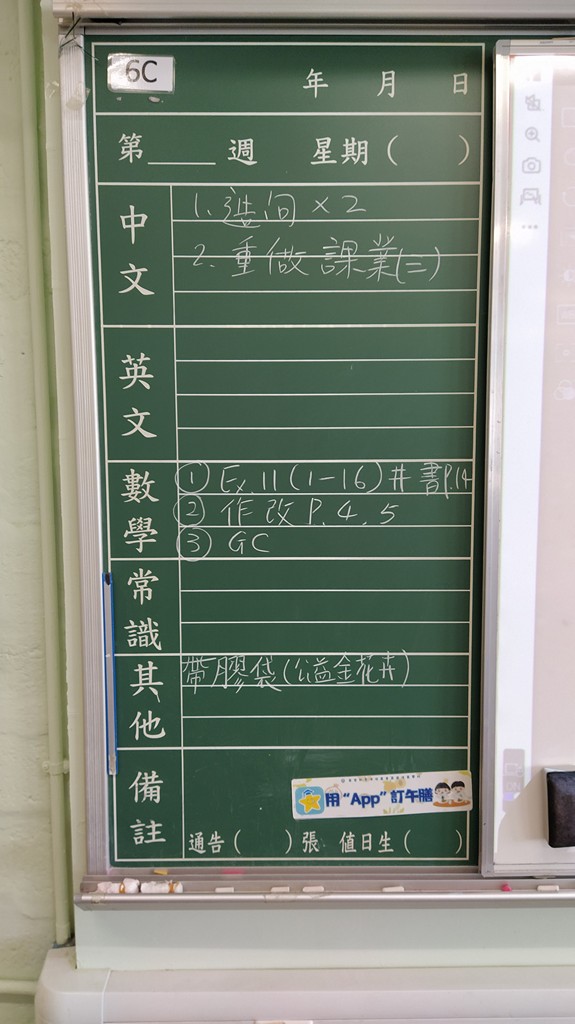 6C
年 月 日
第 週 星期( )
中文
1. 造句 × 2
2. 重做 課業(三)
英文
數學
① Ex.11 (1-16) 井 書P.14
② 作改 P.4.5
③ GC
常識
其他
帶膠袋(公益金花卉)
備註
用 “App” 訂午膳
通告( )張 值日生( )